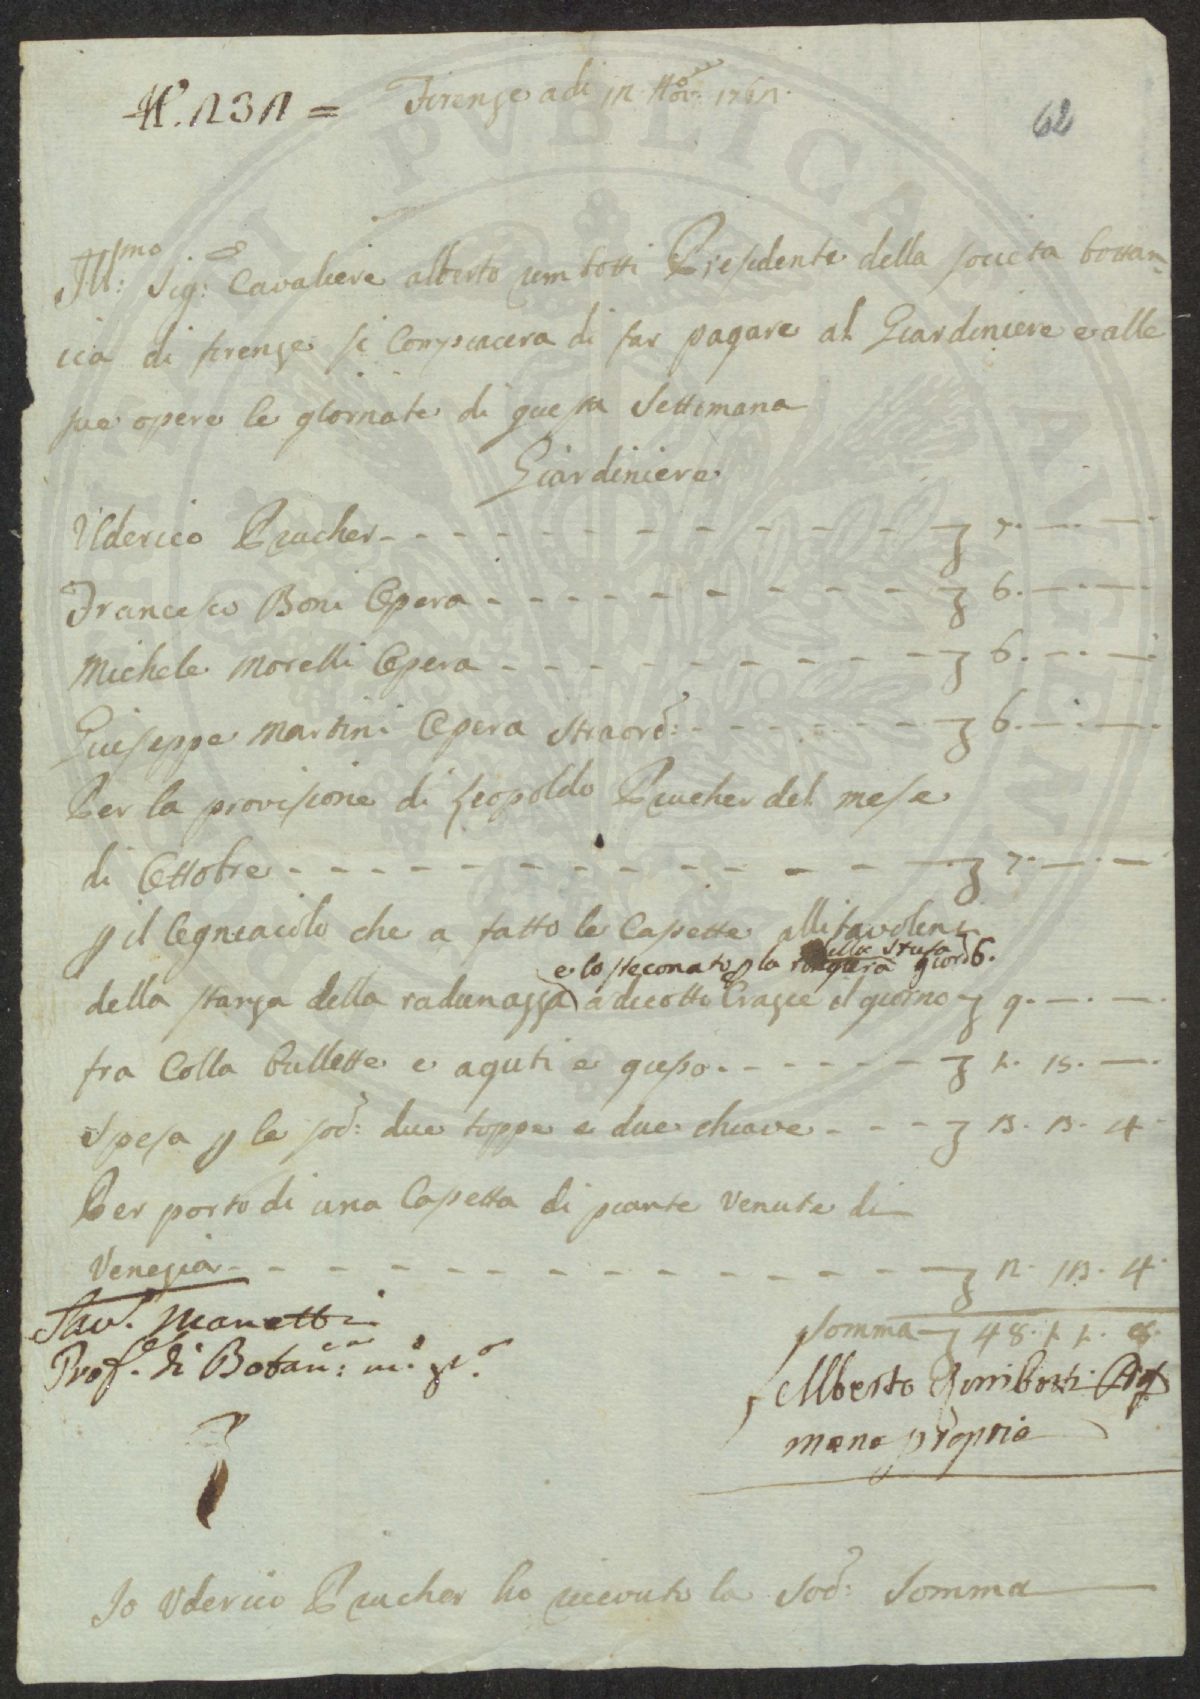 N.° 131 =
Firenze adi 12 Nov.re 1761.
62
Ill:mo Sig:e Cavaliere alberto rimbotti Presidente della societa bottan
icia di firenze si Compiacera di far pagare al Giardiniere e alle
sue opere le giornate di questa Settimana
Giardiniere
Ulderico Prucher - - - 7. —. —.
Francesco Boni Opera - - - 6. —. —.
Michele Morelli Opera - - - 6. —. —.
Guiseppe Martini Opera straord: - - - 6. —. —.
Per la provisione di Leopoldo Prucher del mese
di Ottobre - - - 7. —. —
p il legniaiolo che a fatto le Casette alli tavoleni
della Stufa
e lo steconato p la giord 6.
della stanza della radunazza a dicotto Crazie il giorno 9. —. —.
fra Colla bullette e aguti e gieso - - - 1. 15. —.
Spesa p le sod: due toppe e due chiave - - - 3. 3. 4
Per porto di una Casetta di piante venute di
Venezia - - - 2. 13. 4.
Somma 48. 11. 8.
Sav. Manetti
Prof.e di Botan:ca m.o p.o
Alberto Rimbotti
mano propria
Io Uderico Prucher ho riceuuto la Sod: Somma